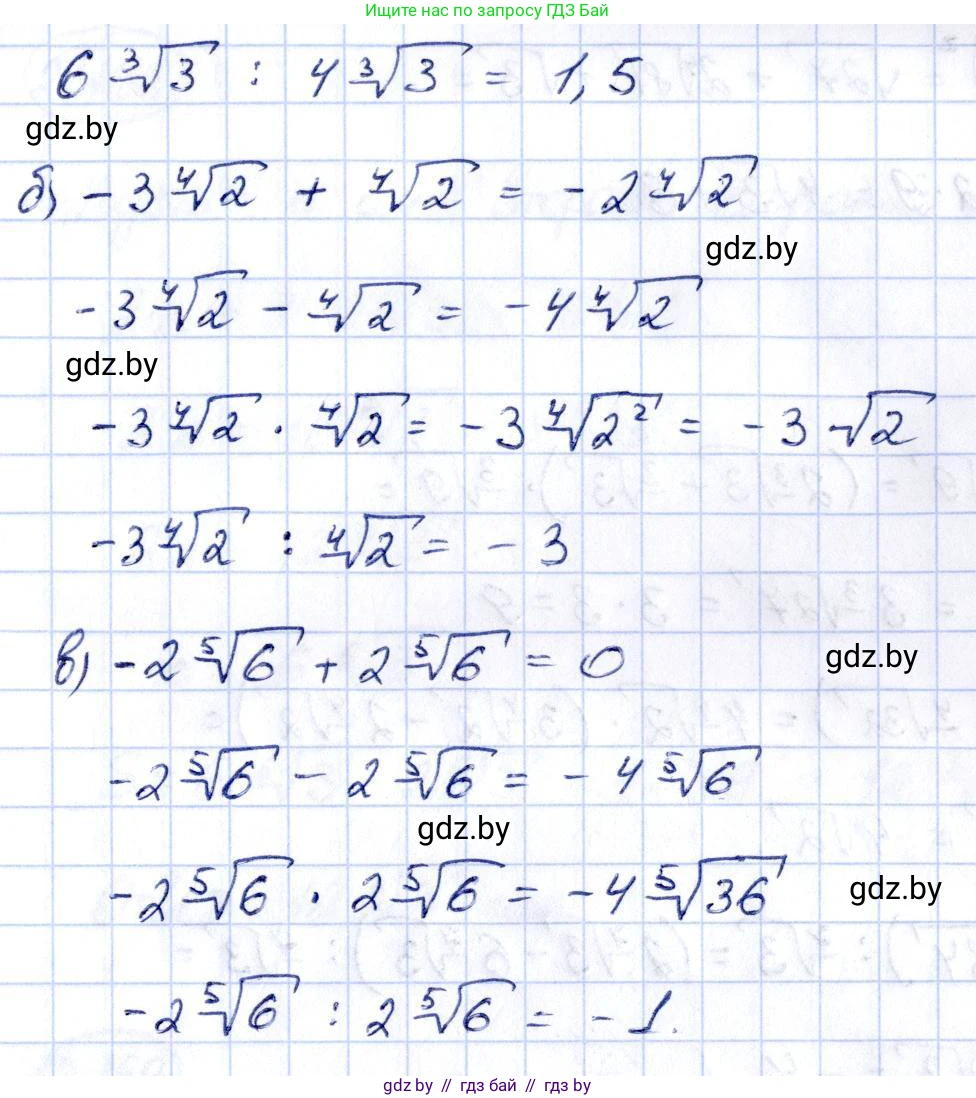 Ищите нас по запросу ГДЗ Бай
6∛3 : 4∛3 = 1,5
gdz.by
б) -3∜2 + ∜2 = -2∜2
gdz.by
-3∜2 - ∜2 = -4∜2
gdz.by
-3∜2 · ∜2 = -3∜2² = -3√2
-3∜2 : ∜2 = -3
в) -2⁵√6 + 2⁵√6 = 0
gdz.by
-2⁵√6 - 2⁵√6 = -4⁵√6
gdz.by
-2⁵√6 · 2⁵√6 = -4⁵√36
gdz.by
-2⁵√6 : 2⁵√6 = -1.
gdz.by // гдз бай // гдз by